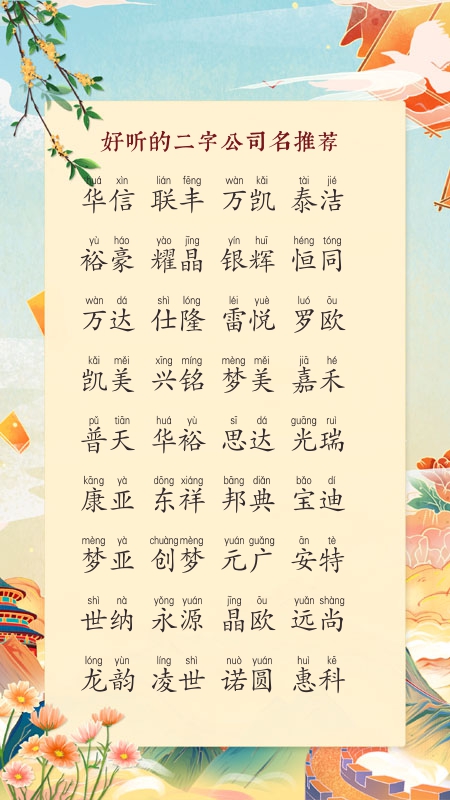 好听的二字公司名推荐
huá xìn lián fēng wàn kǎi tài jié
华信 联丰 万凯 泰洁
yù háo yào jīng yín huī héng tóng
裕豪 耀晶 银辉 恒同
wàn dá shì lóng léi yuè luó ōu
万达 仕隆 雷悦 罗欧
kǎi měi xīng míng mèng měi jiā hé
凯美 兴铭 梦美 嘉禾
pǔ tiān huá yù sī dá guāng ruì
普天 华裕 思达 光瑞
kāng yà dōng xiáng bāng diǎn bǎo dí
康亚 东祥 邦典 宝迪
mèng yà chuàng mèng yuán guǎng ān tè
梦亚 创梦 元广 安特
shì nà yǒng yuán jīng ōu yuǎn shàng
世纳 永源 晶欧 远尚
lóng yùn líng shì nuò yuán huì kē
龙韵 凌世 诺圆 惠科